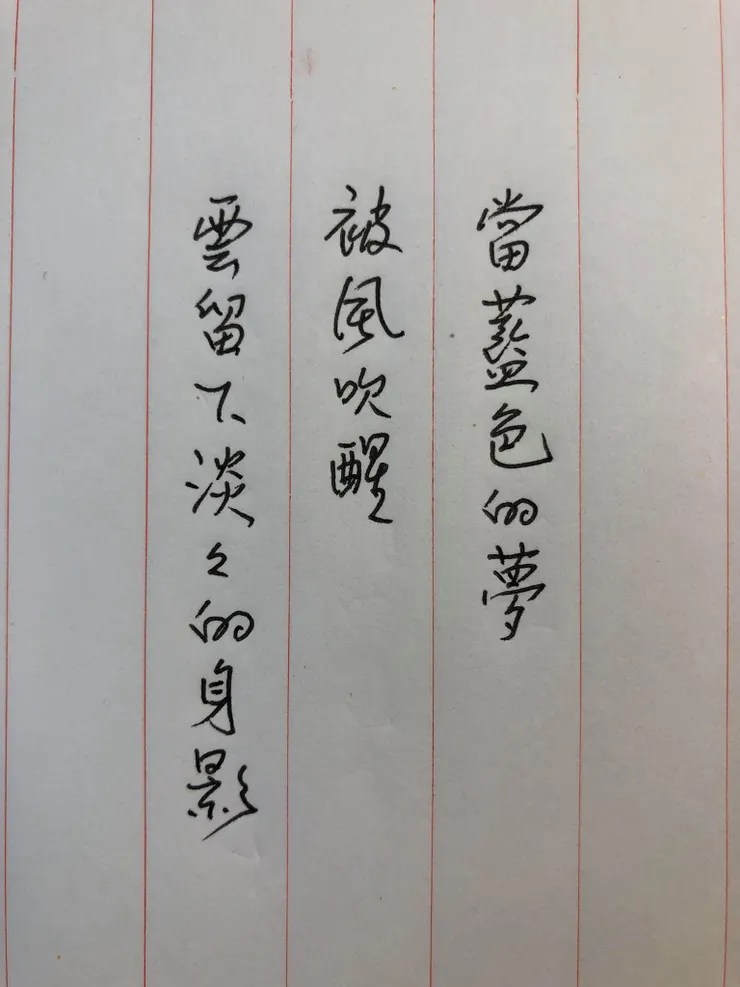 當藍色的夢
被風吹醒
雲留下淡々的身影